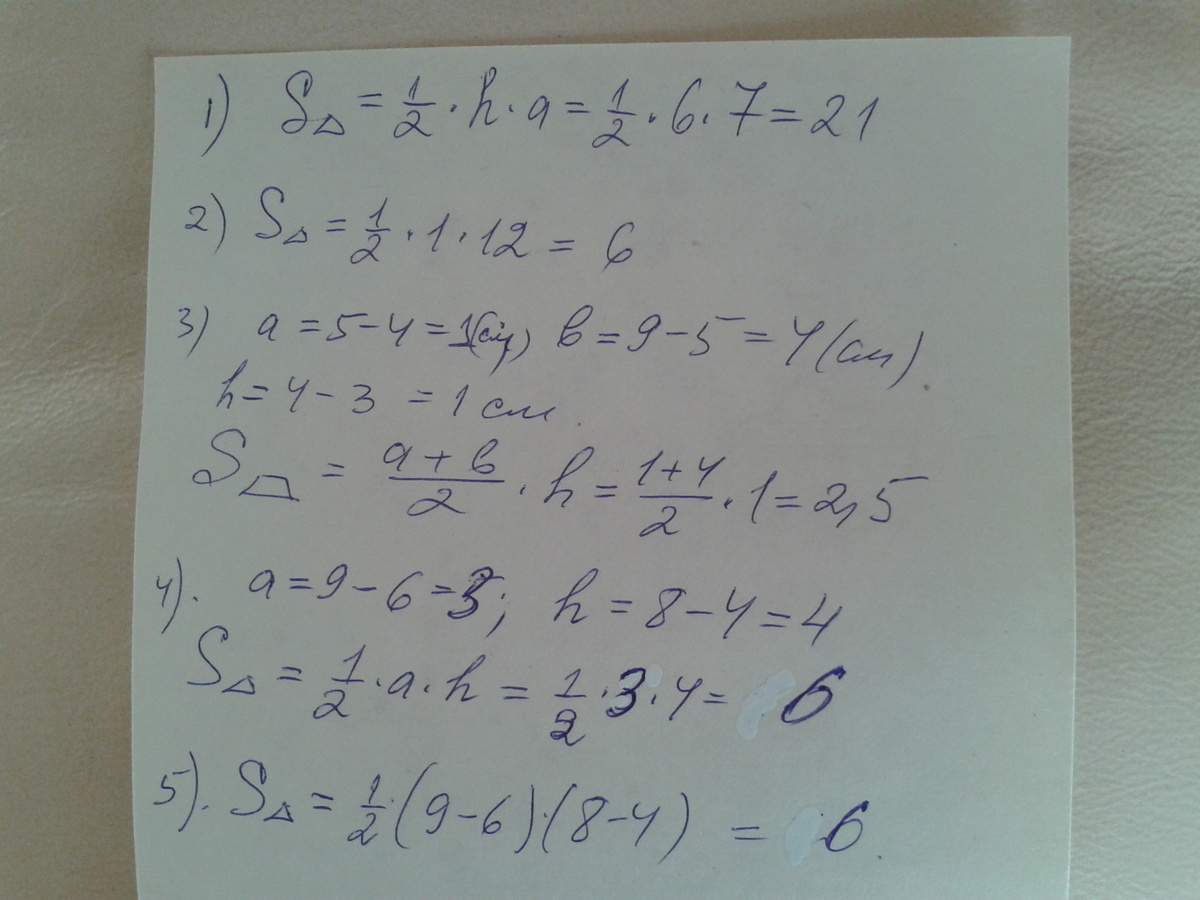 1) S△ = 1/2 · h · a = 1/2 · 6 · 7 = 21
2) S△ = 1/2 · 1 · 12 = 6
3) a = 5 - 4 = 1(см) в = 9 - 5 = 4(см).
h = 4 - 3 = 1 см.
S⏢ = (a + в)/2 · h = (1+4)/2 · 1 = 2,5
4). a = 9 - 6 = 3; h = 8 - 4 = 4
S△ = 1/2 · a · h = 1/2 · 3 · 4 = 6
5). S△ = 1/2 · (9 - 6) · (8 - 4) = 6.